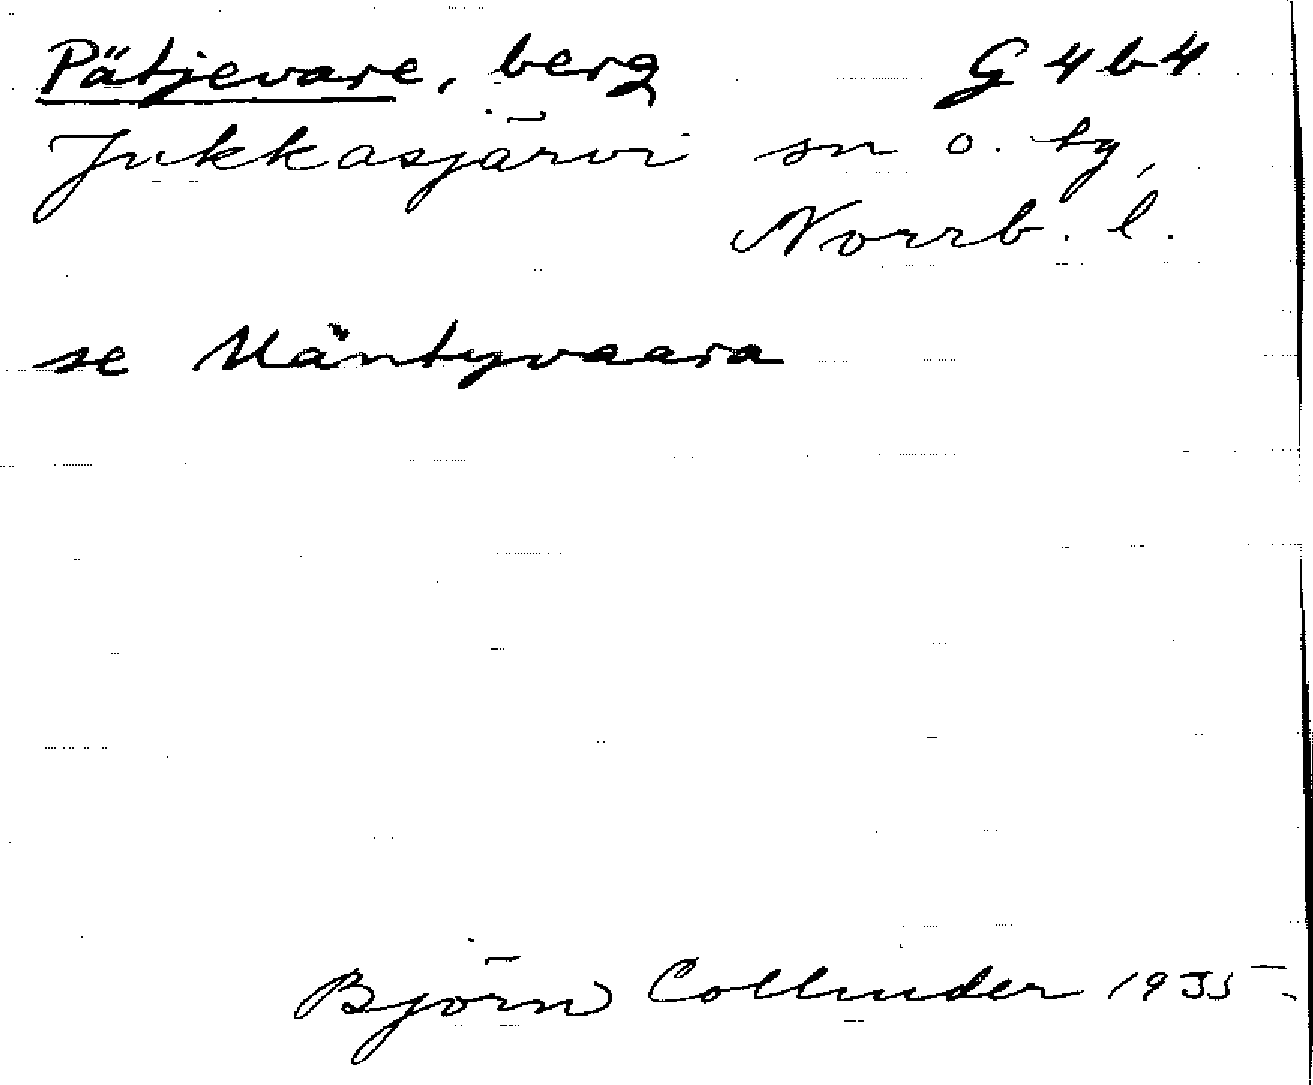 Pätjevare, berg G 4 b 4
Jukkasjärvi sn o. tg,
Norrb. l.
se Mäntyvaara
Björn Collinder 1935.